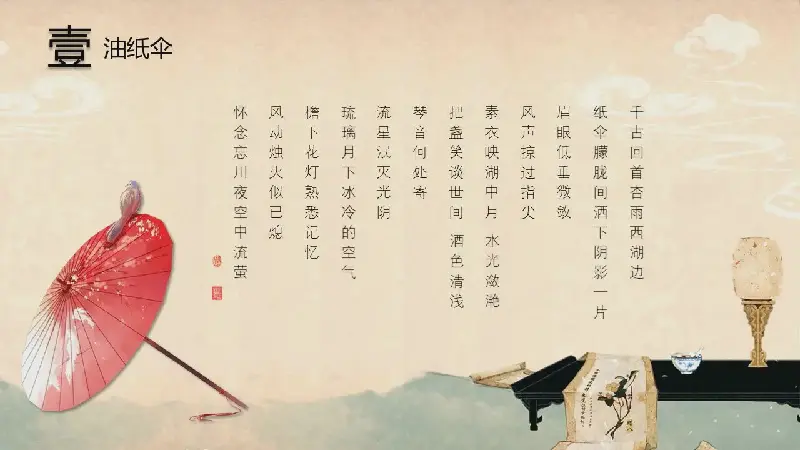 壹
油纸伞
千古回首杏雨西湖边
纸伞朦胧间洒下阴影一片
眉眼低垂微敛
风声掠过指尖
素衣映湖中月 水光潋滟
把盏笑谈世间 酒色清浅
琴音何处寄
流星湮灭光阴
琉璃月下冰冷的空气
檐下花灯熟悉记忆
风动烛火似已熄
怀念忘川夜空中流萤